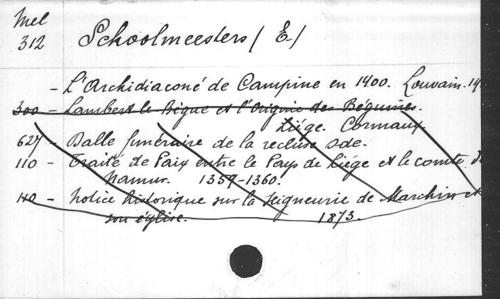 Mel
312 Schoolmeesters (E)
- L'Archidiaconé de Campine en 1400. Louvain. 19
300 - Lambert le Bègue et l'Origine des Béguines.
Liége. Cormaux.
627 - Dalle funéraire de la recluse Ode.
110 - Traité de Paix entre le Pays de Liége et le comte d
Namur. 1357-1360.
110 - Notice historique sur la Seigneurie de Marchin et
son église. 1873.